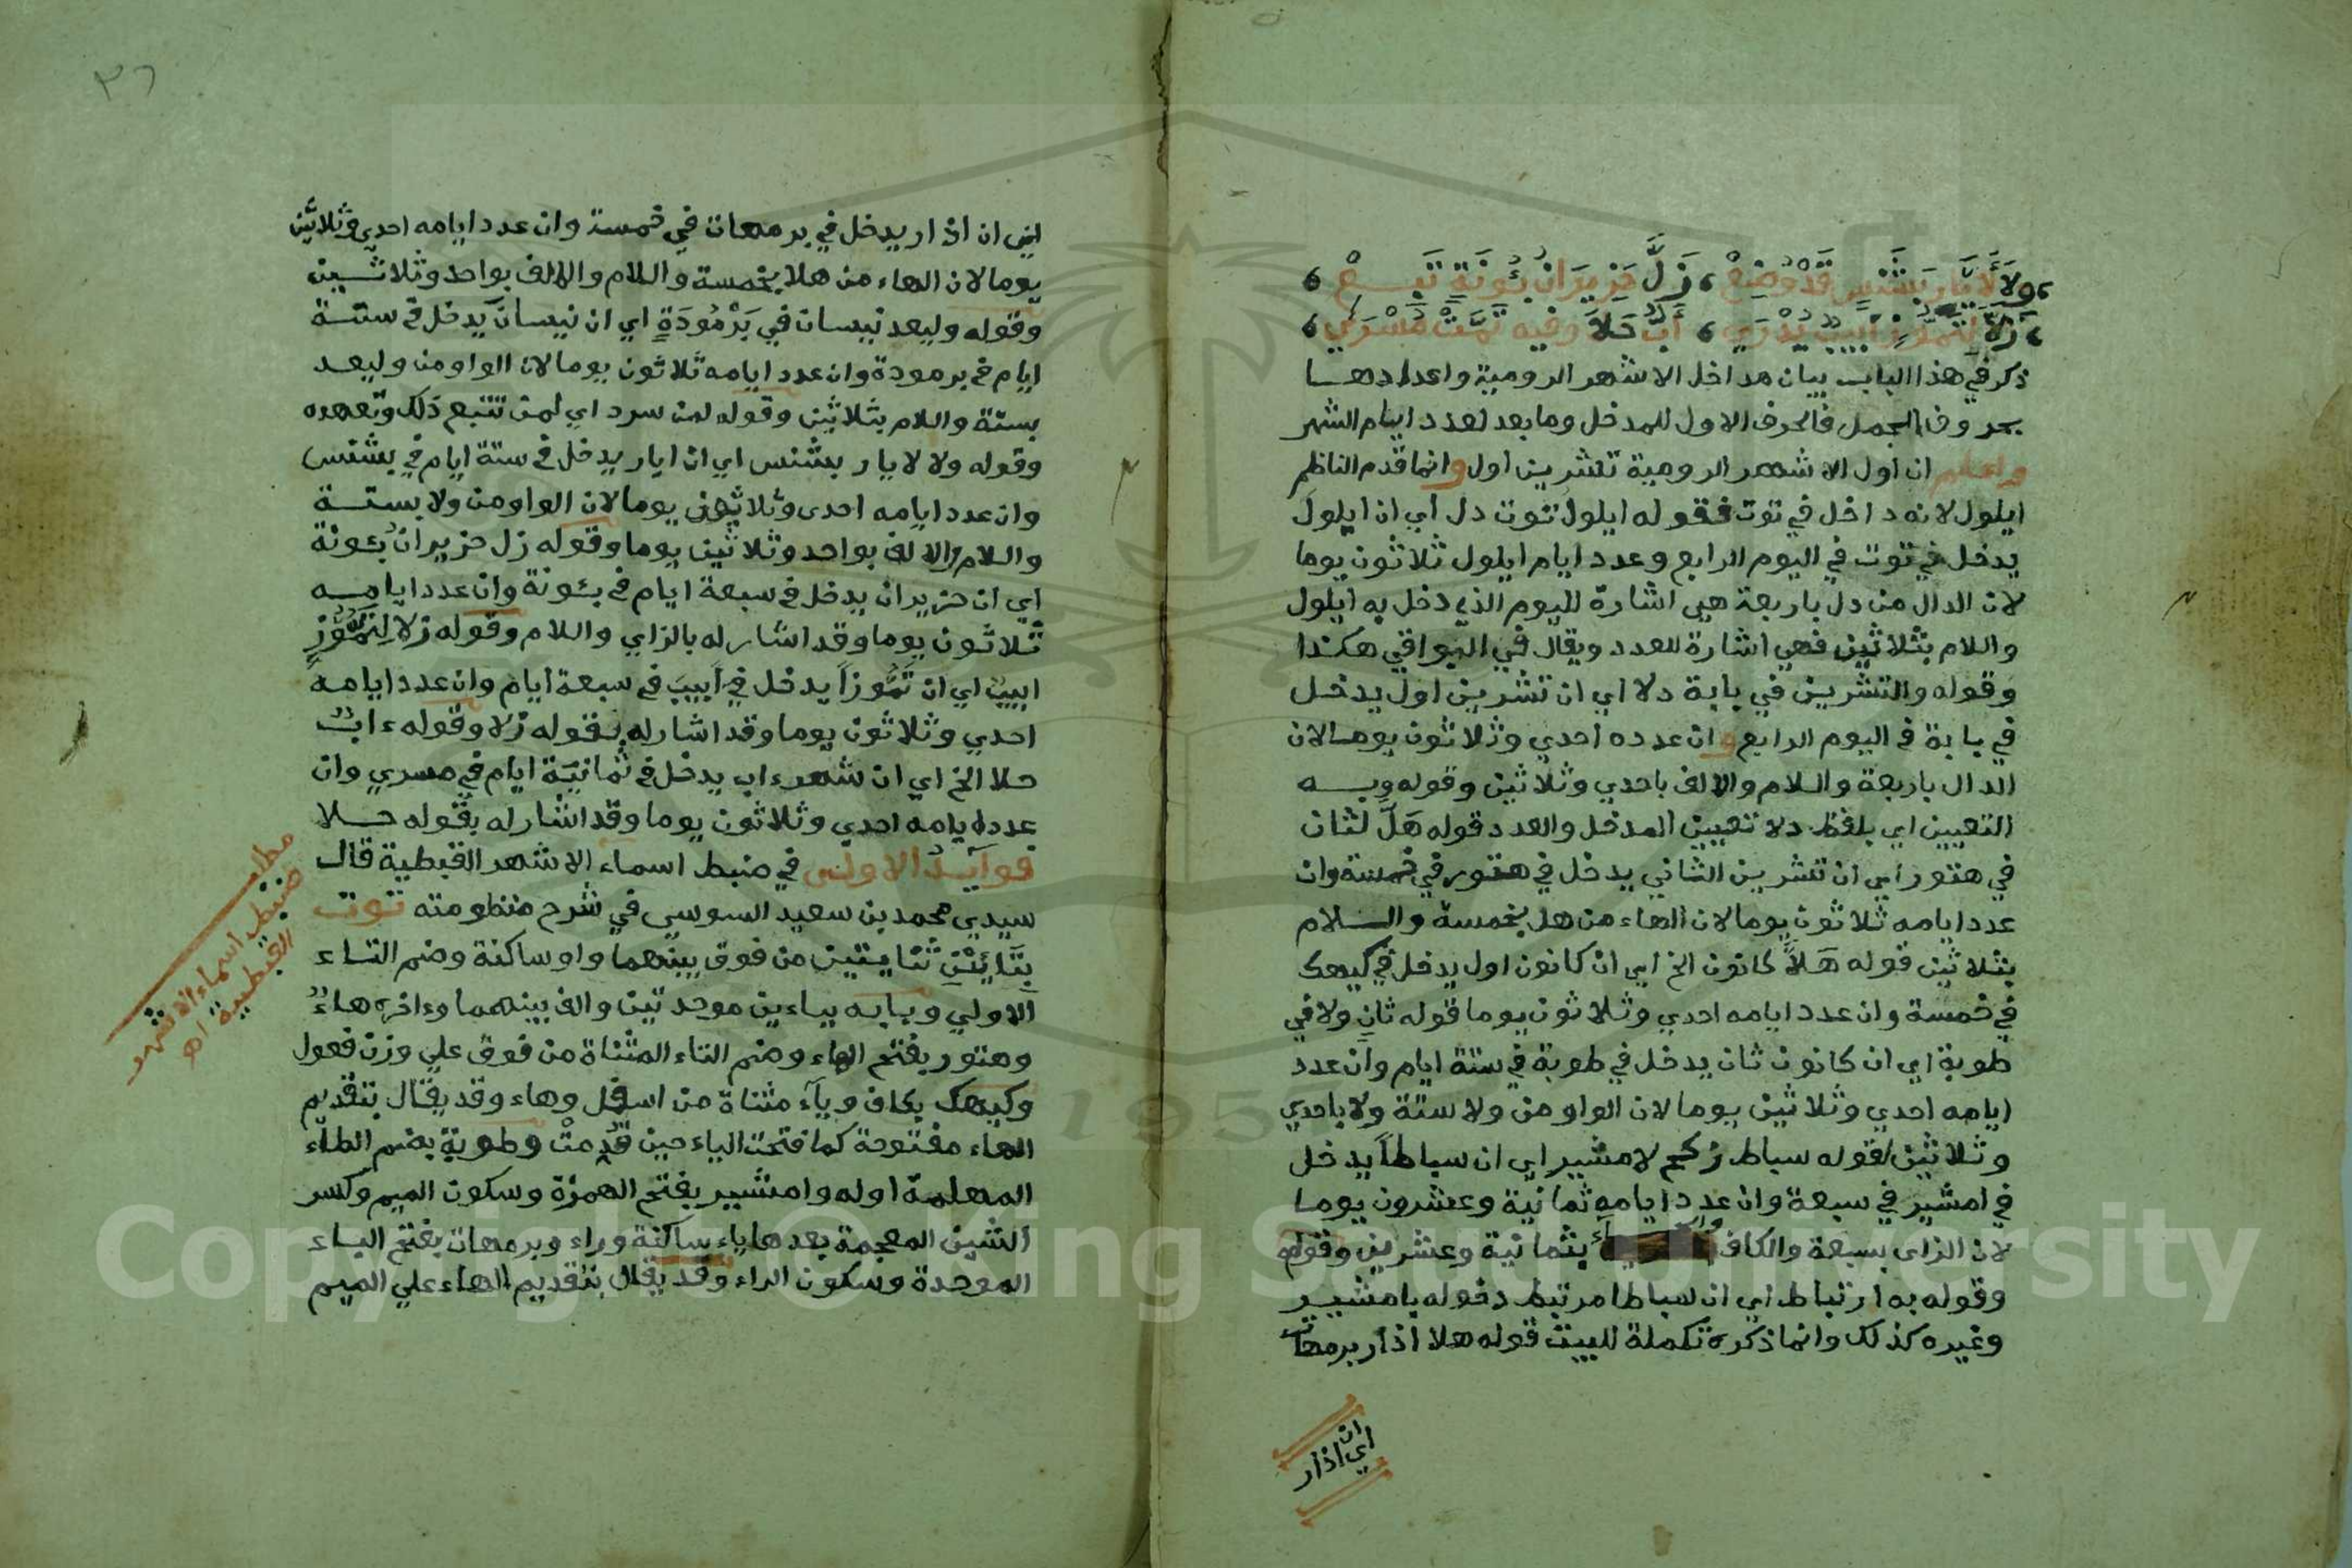 ولا لأيار بشنس قد وضع ، زل حزيران بئونة تبع
زلا لتموز أبيب يدري ، أب حلا وفيه تمت مسري
ذكر في هذا الباب بيان مداخل الاشهر الرومية واعدادها
بحروف الجمل فالحرف الاول للمدخل وما بعد لعدد ايام الشهر
واعلم ان اول الاشهر الرومية تشرين اول وانما قدم الناظم
ايلول لانه داخل في توت فقوله ايلول توت دل أي ان ايلول
يدخل في توت في اليوم الرابع وعدد ايام ايلول ثلاثون يوما
لان الدال من دل باربعة هي اشارة لليوم الذي دخل به ايلول
واللام بثلاثين فهي اشارة للعدد ويقال في البواقي هكذا
وقوله والتشرين في بابة دلا اي ان تشرين اول يدخل
في بابة في اليوم الرابع وان عدده احدي وثلاثون يوما لان
الدال باربعة واللام والالف باحدي وثلاثين وقوله وبه
التعيين اي بلفظ دلا تعيين المدخل والعدد قوله هل لثان
في هتور أي ان تشرين الثاني يدخل في هتور في خمسة وان
عدد ايامه ثلاثون يوما لان الهاء من هل بخمسة واللام
بثلاثين قوله هلا كانون الخ اي ان كانون اول يدخل في كيهك
في خمسة وان عدد ايامه احدي وثلاثون يوما قوله ثان ولا في
طوبة اي ان كانون ثان يدخل في طوبة في ستة ايام وان عدد
ايامه احدي وثلاثين يوما لان الواو من ولا ستة ولا باحدي
وثلاثين قوله سباط زكح لامشير اي ان سباطاً يدخل
في امشير في سبعة وان عدد ايامه ثمانية وعشرون يوما
لان الزاي بسبعة والكاف والحاء بثمانية وعشرين وقوله
وقوله به ارتباط اي ان سباطا مرتبط دخوله بامشير
وغيره كذلك وانما ذكره تكملة للبيت قوله هلا اذار برمهات
اي ان اذار
٣٦
اي ان اذار يدخل في برمهات في خمسة وان عدد ايامه احدي وثلاثين
يوما لان الهاء من هلا بخمسة واللام والالف بواحد وثلاثين
وقوله وليعد نيسان في برمودة اي ان نيسان يدخل في ستة
ايام في برمودة وان عدد ايامه ثلاثون يوما لان الواو من وليعد
بستة واللام بثلاثين وقوله لمن سرد اي لمن تتبع ذلك وتعهده
وقوله ولا لايار بشنس اي ان ايار يدخل في ستة ايام في بشنس
وان عدد ايامه احدى وثلاثون يوما لان الواو من ولا بستة
واللام والالف بواحد وثلاثين يوما وقوله زل حزيران بئونة
أي ان حزيران يدخل في سبعة ايام في بئونة وان عدد ايامه
ثلاثون يوما وقد اشار له بالزاي واللام وقوله زلا لتموز
ابيب اي ان تموزاً يدخل في أبيب في سبعة ايام وان عدد ايامه
احدي وثلاثون يوما وقد اشار له بقوله زلا وقوله ءاب
حلا الخ اي ان شهر ءاب يدخل في ثمانية ايام في مسري وان
عدد ايامه احدي وثلاثون يوما وقد اشار له بقوله حلا
فوايد الاولى في ضبط اسماء الاشهر القبطية قال
سيدي محمد بن سعيد السوسي في شرح منظومته توت
بتائين ثنايتين من فوق بينهما واو ساكنة وضم التاء
الاولي وبابه بباءين موحدتين والف بينهما وءاخره هاء
وهتور بفتح الهاء وضم التاء المثناة من فوق علي وزن فعول
وكيهك بكاف وياء مثناة من اسفل وهاء وقد يقال بتقديم
الهاء مفتوحة كما فتحت الياء حين قدمت وطوبة بضم الطاء
المهملة اوله وامشير بفتح الهمزة وسكون الميم وكسر
الشين المعجمة بعدها ياء ساكنة وراء وبرمهات بفتح الباء
الموحدة وسكون الراء وقد يقال بتقديم الهاء علي الميم
مطلب
ضبط اسماء الاشهر
القبطية اه
Copyright © King Saud University
195